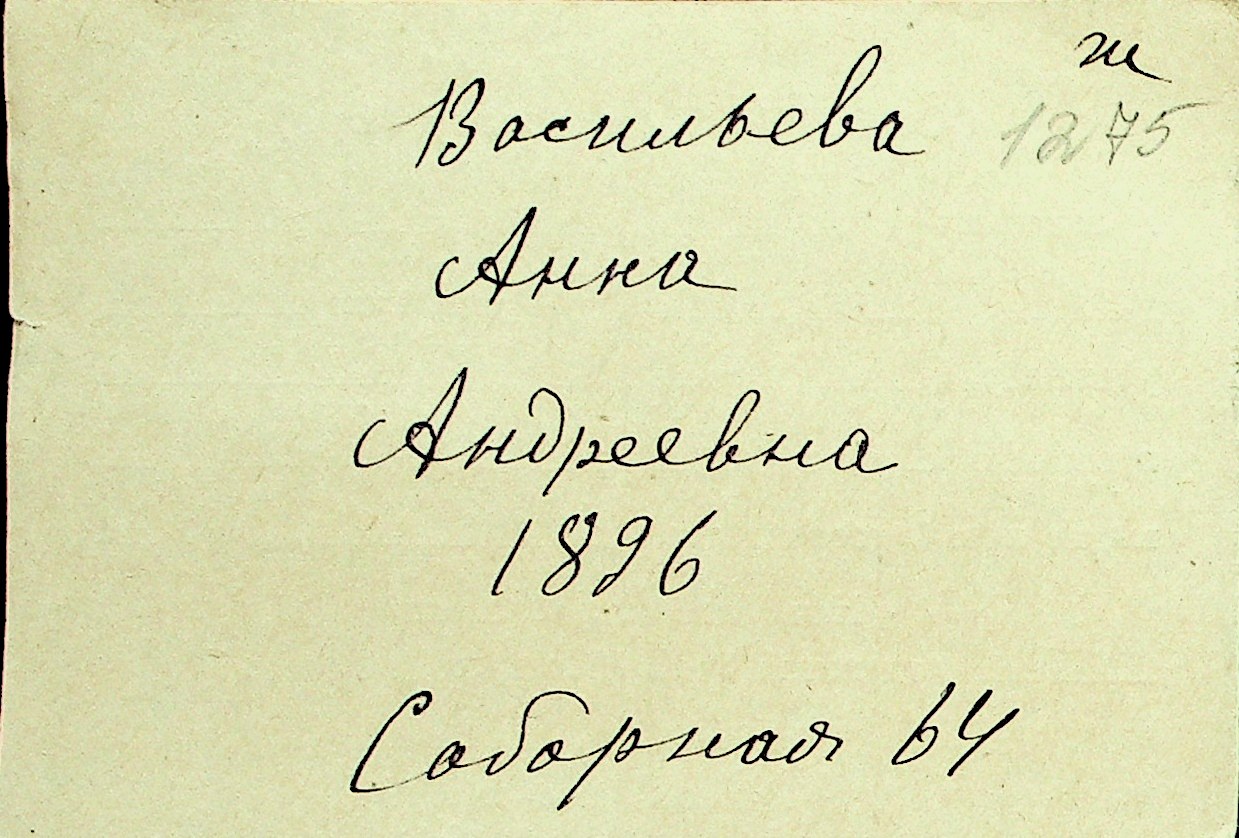 ж
Васильева 1275
Анна
Андреевна
1896
Соборная 64